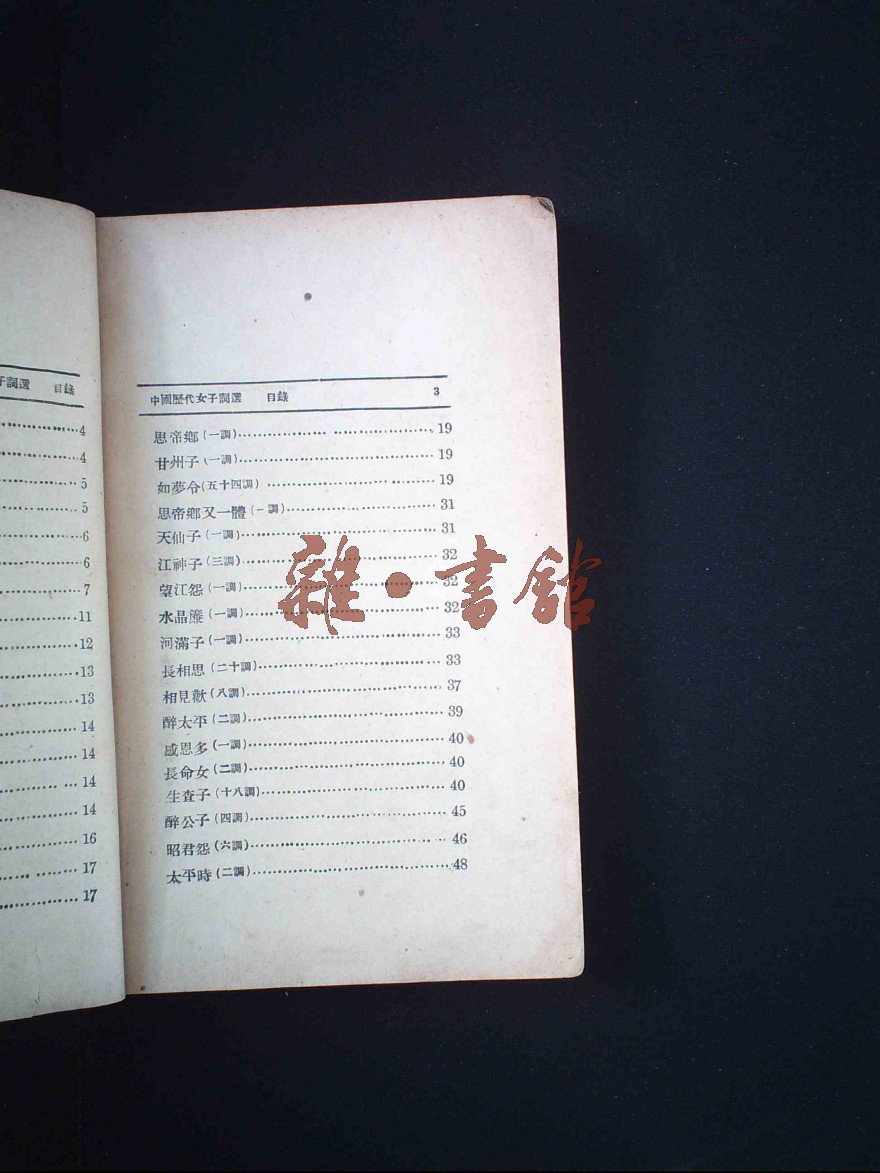 子詞選 目錄
4
4
5
5
6
6
7
11
12
13
13
14
14
14
14
16
17
17
中國歷代女子詞選 目錄 3
思帝鄉(一調) 19
甘州子(一調) 19
如夢令(五十四調) 19
思帝鄉又一體(一調) 31
天仙子(一調) 31
江神子(三調) 32
望江怨(一調) 32
水晶簾(一調) 32
河滿子(一調) 33
長相思(二十調) 33
相見歡(八調) 37
醉太平(二調) 39
感恩多(一調) 40
長命女(二調) 40
生查子(十八調) 40
醉公子(四調) 45
昭君怨(六調) 46
太平時(二調) 48
雜·書館